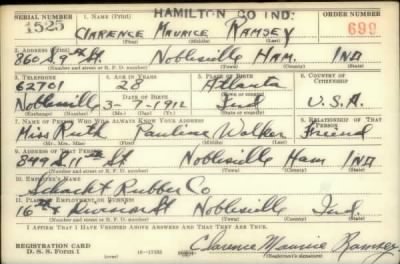 HAMILTON CO IND:
SERIAL NUMBER 1. NAME (Print) ORDER NUMBER
1525 CLARENCE MAURICE RAMSEY 699
(First) (Middle) (Last)
2. ADDRESS (Print)
860 S. 9th St Noblesville HAM. IND
(Number and street or R. F. D. number) (Town) (County) (State)
3. TELEPHONE 4. AGE IN YEARS 5. PLACE OF BIRTH 6. COUNTRY OF CITIZENSHIP
62701 28 Atlanta
DATE OF BIRTH
Noblesville 3-7-1912 Ind U.S.A.
(Exchange) (Number) (Mo.) (Day) (Yr.) (State or country)
7. NAME OF PERSON WHO WILL ALWAYS KNOW YOUR ADDRESS 8. RELATIONSHIP OF THAT PERSON
Miss Ruth Pauline Walker Friend
(Mr., Mrs., Miss) (First) (Middle) (Last)
9. ADDRESS OF THAT PERSON
849 S. 11th St Noblesville Ham IND
(Number and street or R. F. D. number) (Town) (County) (State)
10. EMPLOYER'S NAME
Schacht Rubber Co
11. PLACE OF EMPLOYMENT OR BUSINESS
16th & Division St Noblesville Ind.
(Number and street or R. F. D. number) (Town) (County) (State)
I AFFIRM THAT I HAVE VERIFIED ABOVE ANSWERS AND THAT THEY ARE TRUE.
REGISTRATION CARD
D. S. S. Form 1 Clarence Maurice Ramsey
(Registrant's signature)